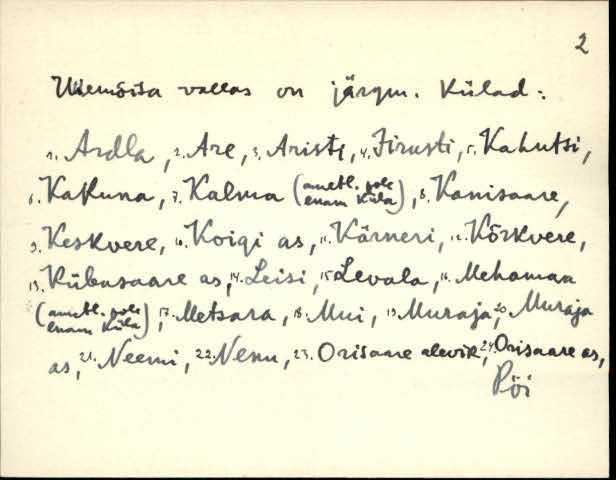 2
Uuemõisa vallas on järgm. külad:
1. Ardla, 2. Are, 3. Ariste, 4. Jirusti, 5. Kahutsi,
6. Kakuna, 7. Kalma (ametl. pole enam küla), 8. Kanisaare,
9. Keskvere, 10. Koigi as, 11. Kärneri, 12. Kõrkvere,
13. Kübasaare as, 14. Leisi, 15. Levala, 16. Mehamaa
(ametl. pole enam küla), 17. Metsara, 18. Mui, 19. Muraja, 20. Muraja
as, 21. Neemi, 22. Nenu, 23. Orisaare alevik, 24. Orisaare as,
Pöi